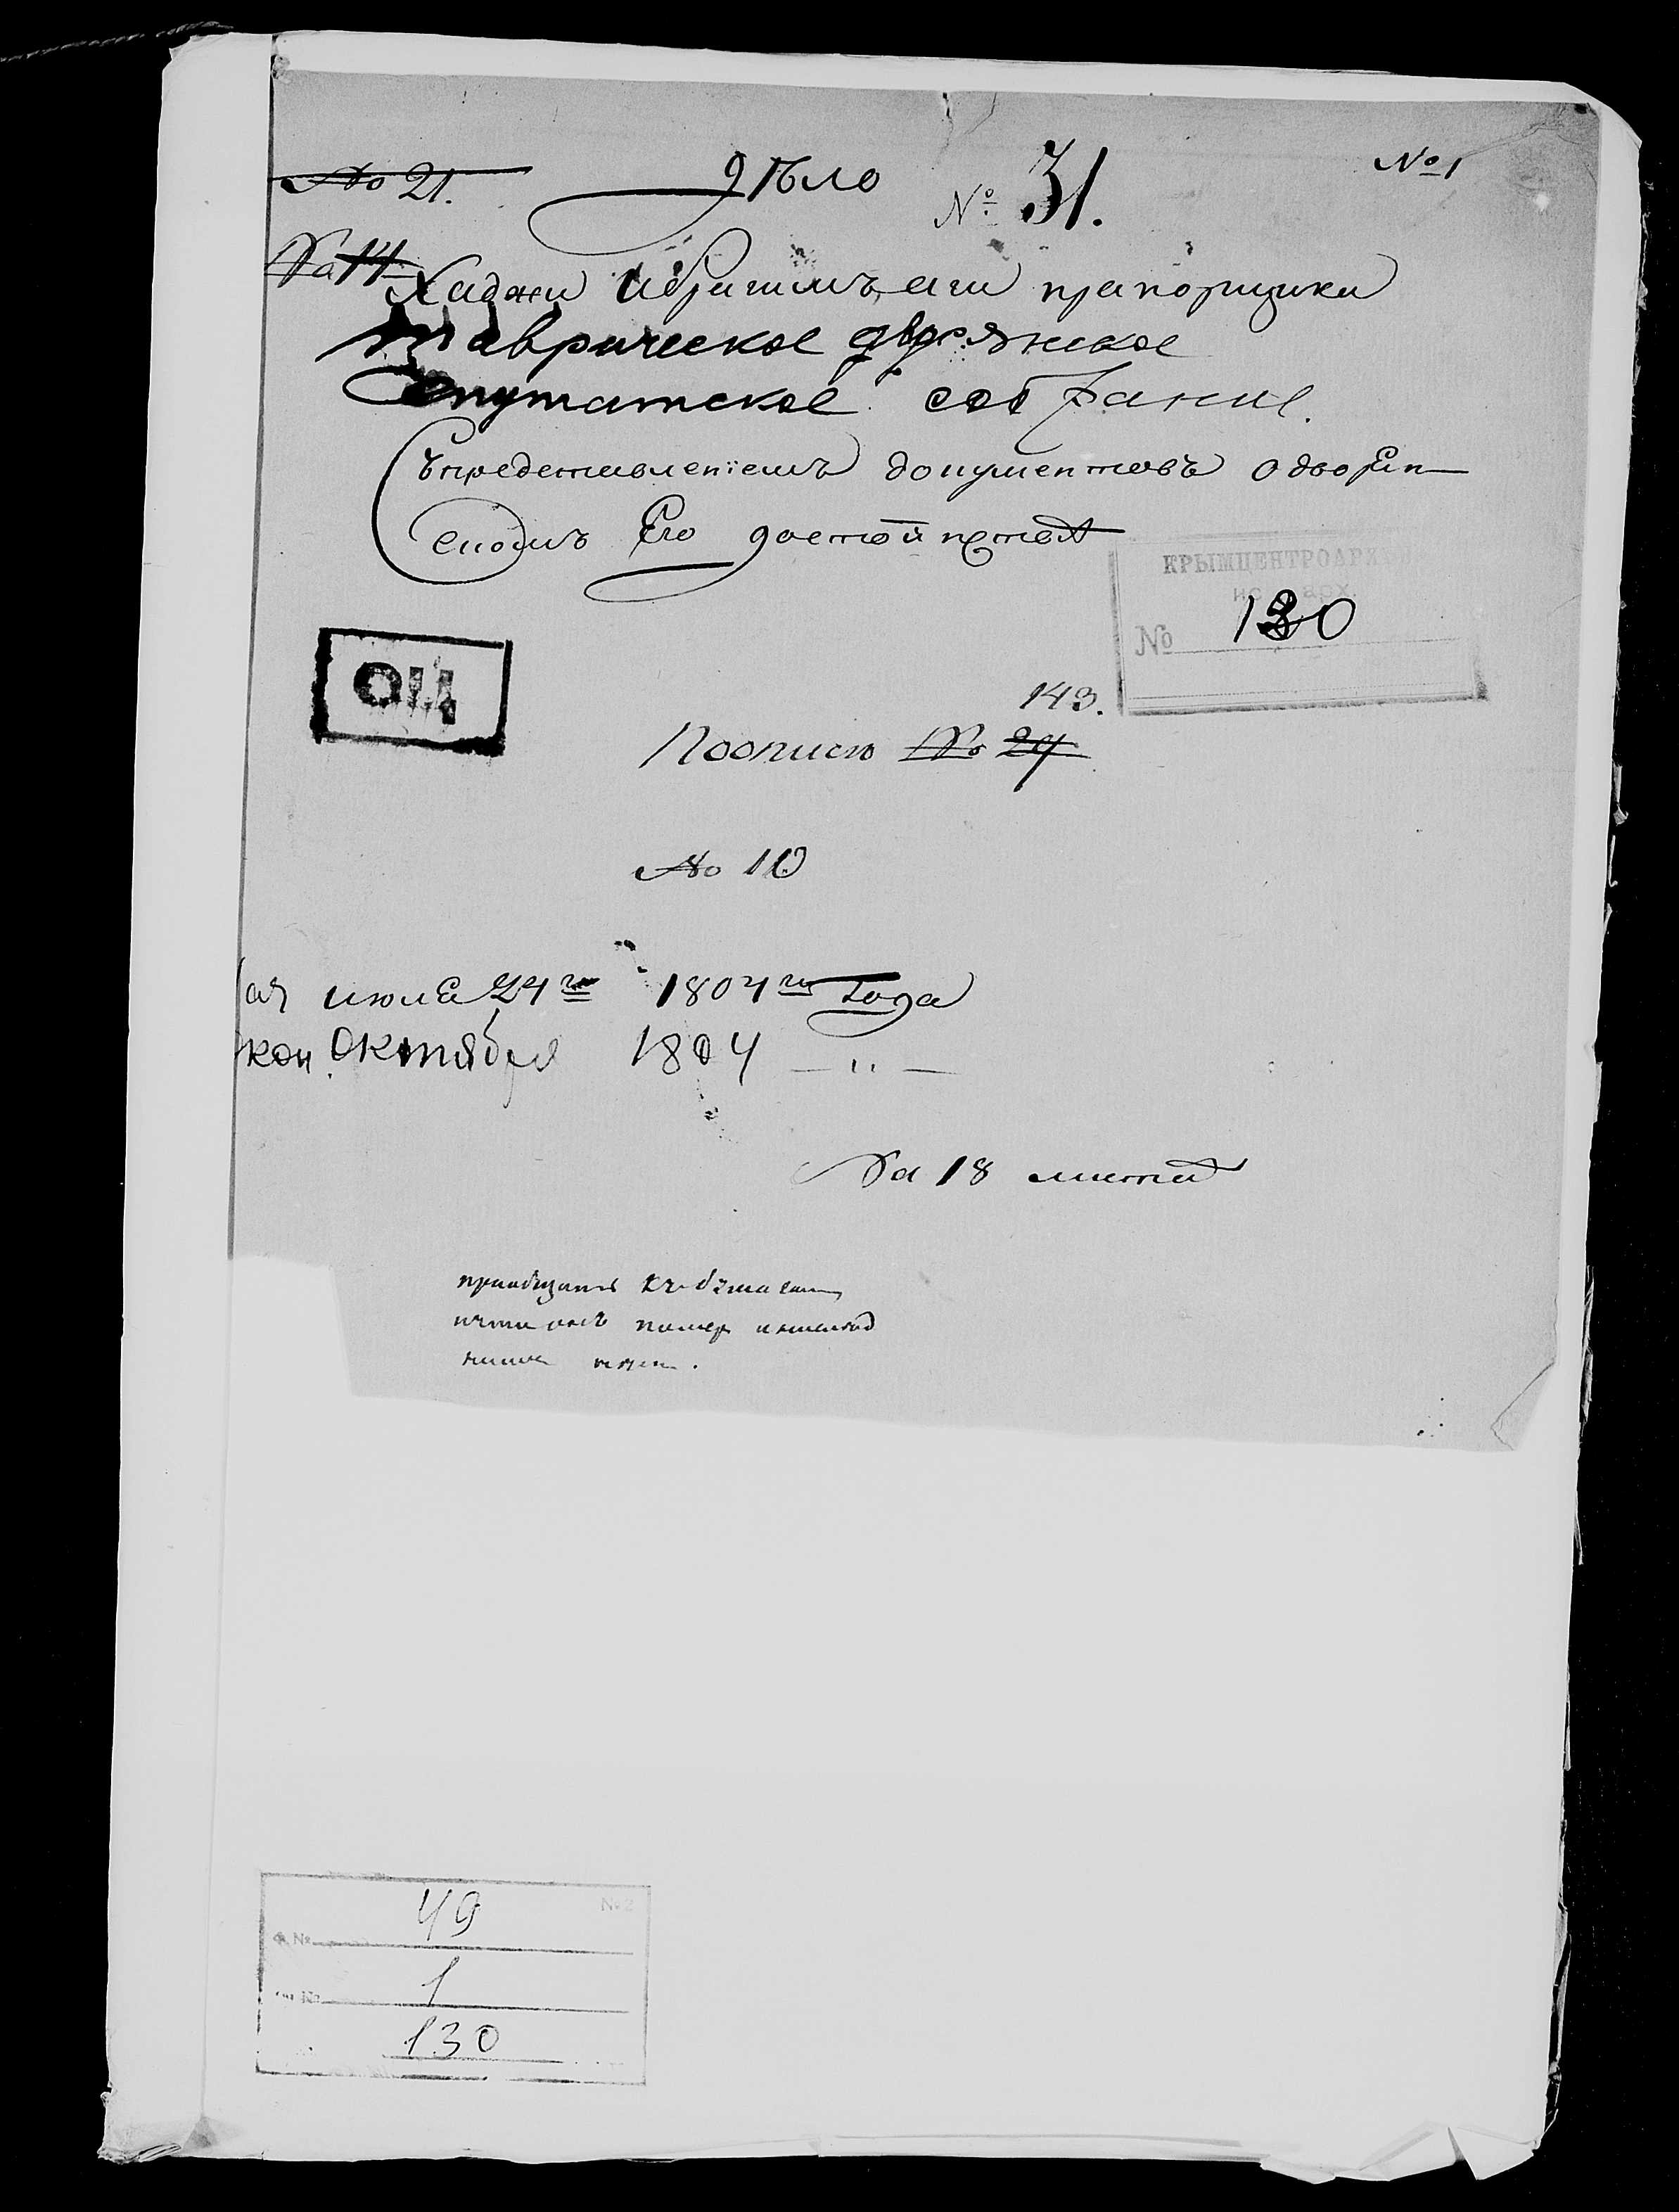 № 21.
Дѣло
№ 31.
№ 1
№ 14
Хаджи Ибрагимъ аги прапорщика
Таврическое дворянское
Депутатское собрание.
Съ представленіемъ документовъ о дворян
скомъ Его достоинстве
КРЫМЦЕНТРОАРХИВ
ист. арх.
№ 130
ОЦ
143.
По описи № 24
№ 10
нач июля 24го 1804го Года
кон. Октября 1804 — " —
На 18 листа
приобщить къ
номер
49
№ 2
ф. №
1
оп. №
130